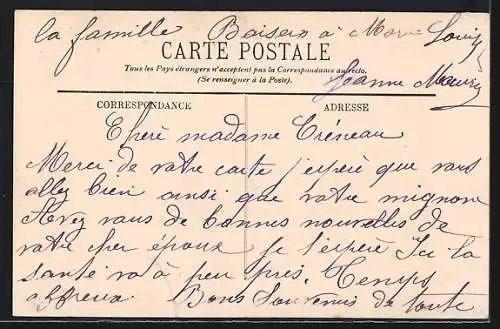 la famille Baisers à Marie Louise
CARTE POSTALE
Tous les Pays étrangers n'acceptent pas la Correspondance au recto.
(Se renseigner à la Poste).
Jeanne
CORRESPONDANCE ADRESSE
madame
Merci de votre carte j'espère que vous
allez bien ainsi que votre mignone
Avez vous de bonnes nouvelles de
votre cher époux je l'espère Ici la
santé va à peu près. Temps
affreux. Bons Souvenirs de toute